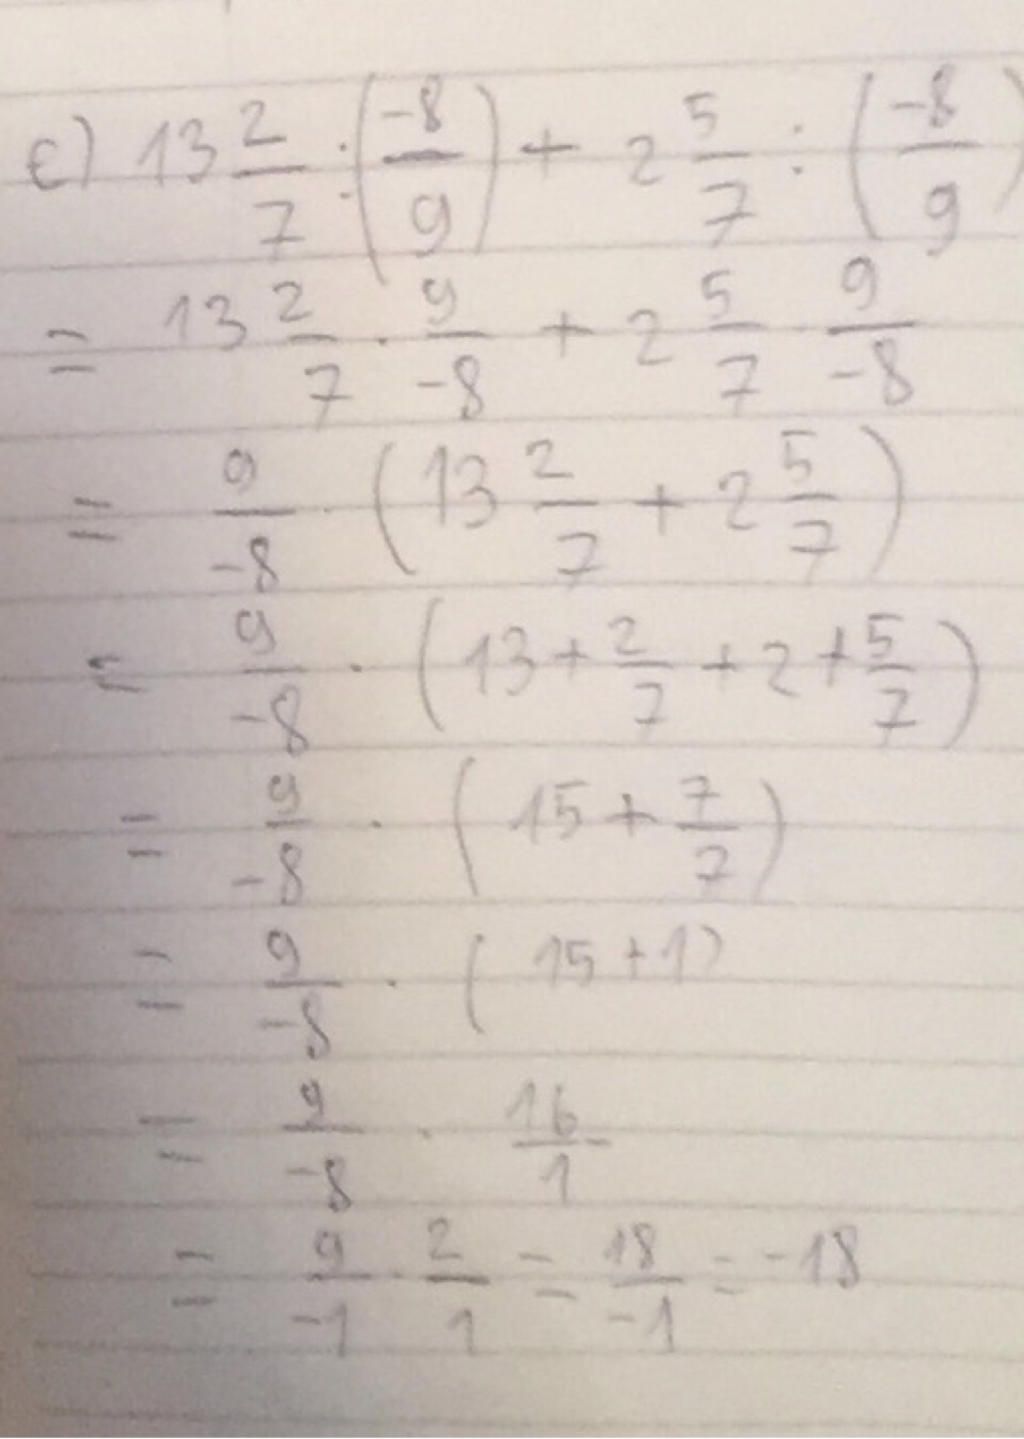 c) 13 2/7 : (-8/9) + 2 5/7 : (-8/9)
= 13 2/7 · 9/-8 + 2 5/7 · 9/-8
= 9/-8 · (13 2/7 + 2 5/7)
= 9/-8 · (13 + 2/7 + 2 + 5/7)
= 9/-8 · (15 + 7/7)
= 9/-8 · (15 + 1)
= 9/-8 · 16/1
= 9/-1 · 2/1 = 18/-1 = -18